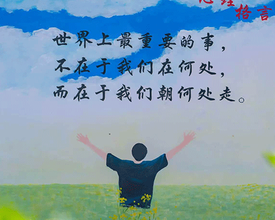 格言
世界上最重要的事，
不在于我们在何处，
而在于我们朝何处走。